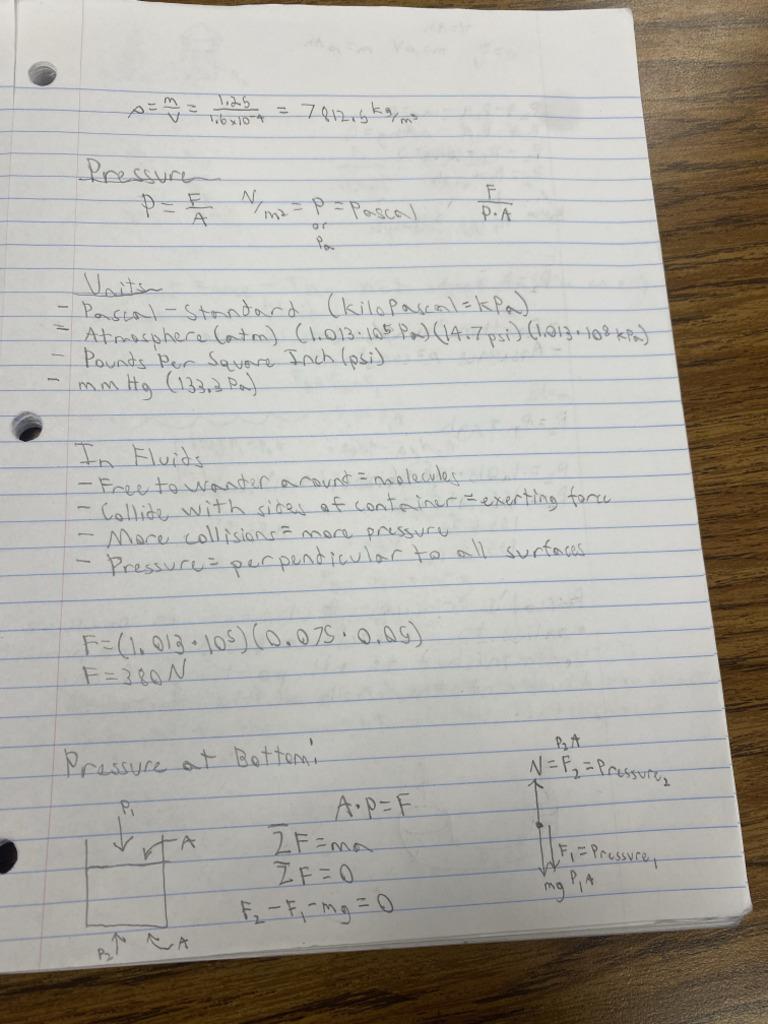 ρ = m/V = 1.25/1.6x10⁻⁴ = 7812.5 kg/m³
Pressure
P = F/A N/m² = P = Pascal F/P·A
or
Pa
Units
- Pascal - Standard (kiloPascal = kPa)
= Atmosphere (atm) (1.013·10⁵ Pa) (14.7 psi) (1.013·10⁸ kPa)
- Pounds Per Square Inch (psi)
- mm Hg (133.3 Pa)
In Fluids
- Free to wander around = molecules
- Collide with sides of container = exerting force
- More collisions = more pressure
- Pressure = perpendicular to all surfaces
F = (1.013·10⁵)(0.075·0.05)
F = 380 N
Pressure at Bottom:
P₂A
N = F₂ = Pressure₂
P₁
A
A·P = F
ΣF = ma
ΣF = 0
F₂ - F₁ - mg = 0
F₁ = Pressure₁
mg P₁A
P₂ A